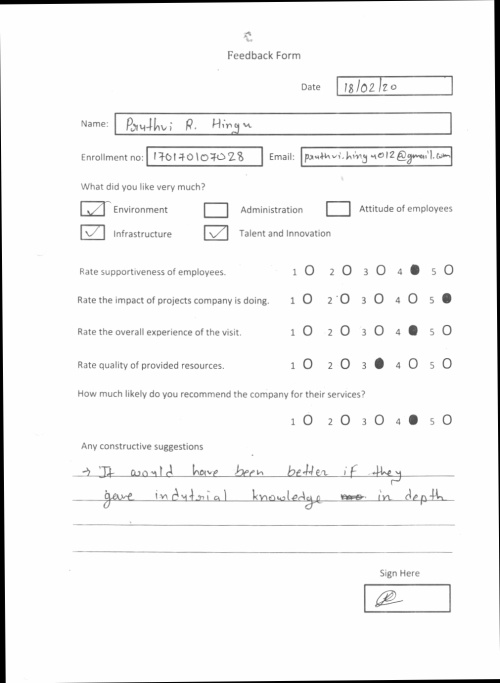 Feedback Form
Date 18/02/20
Name: Pruthvi R. Hingu
Enrollment no: 170170107028 Email: pruthvi.hingu012@gmail.com
What did you like very much?
Environment Administration Attitude of employees
Infrastructure Talent and Innovation
Rate supportiveness of employees. 1 2 3 4 5
Rate the impact of projects company is doing. 1 2 3 4 5
Rate the overall experience of the visit. 1 2 3 4 5
Rate quality of provided resources. 1 2 3 4 5
How much likely do you recommend the company for their services?
1 2 3 4 5
Any constructive suggestions
→ It would have been better if they
gave indutrial knowledge in depth
Sign Here